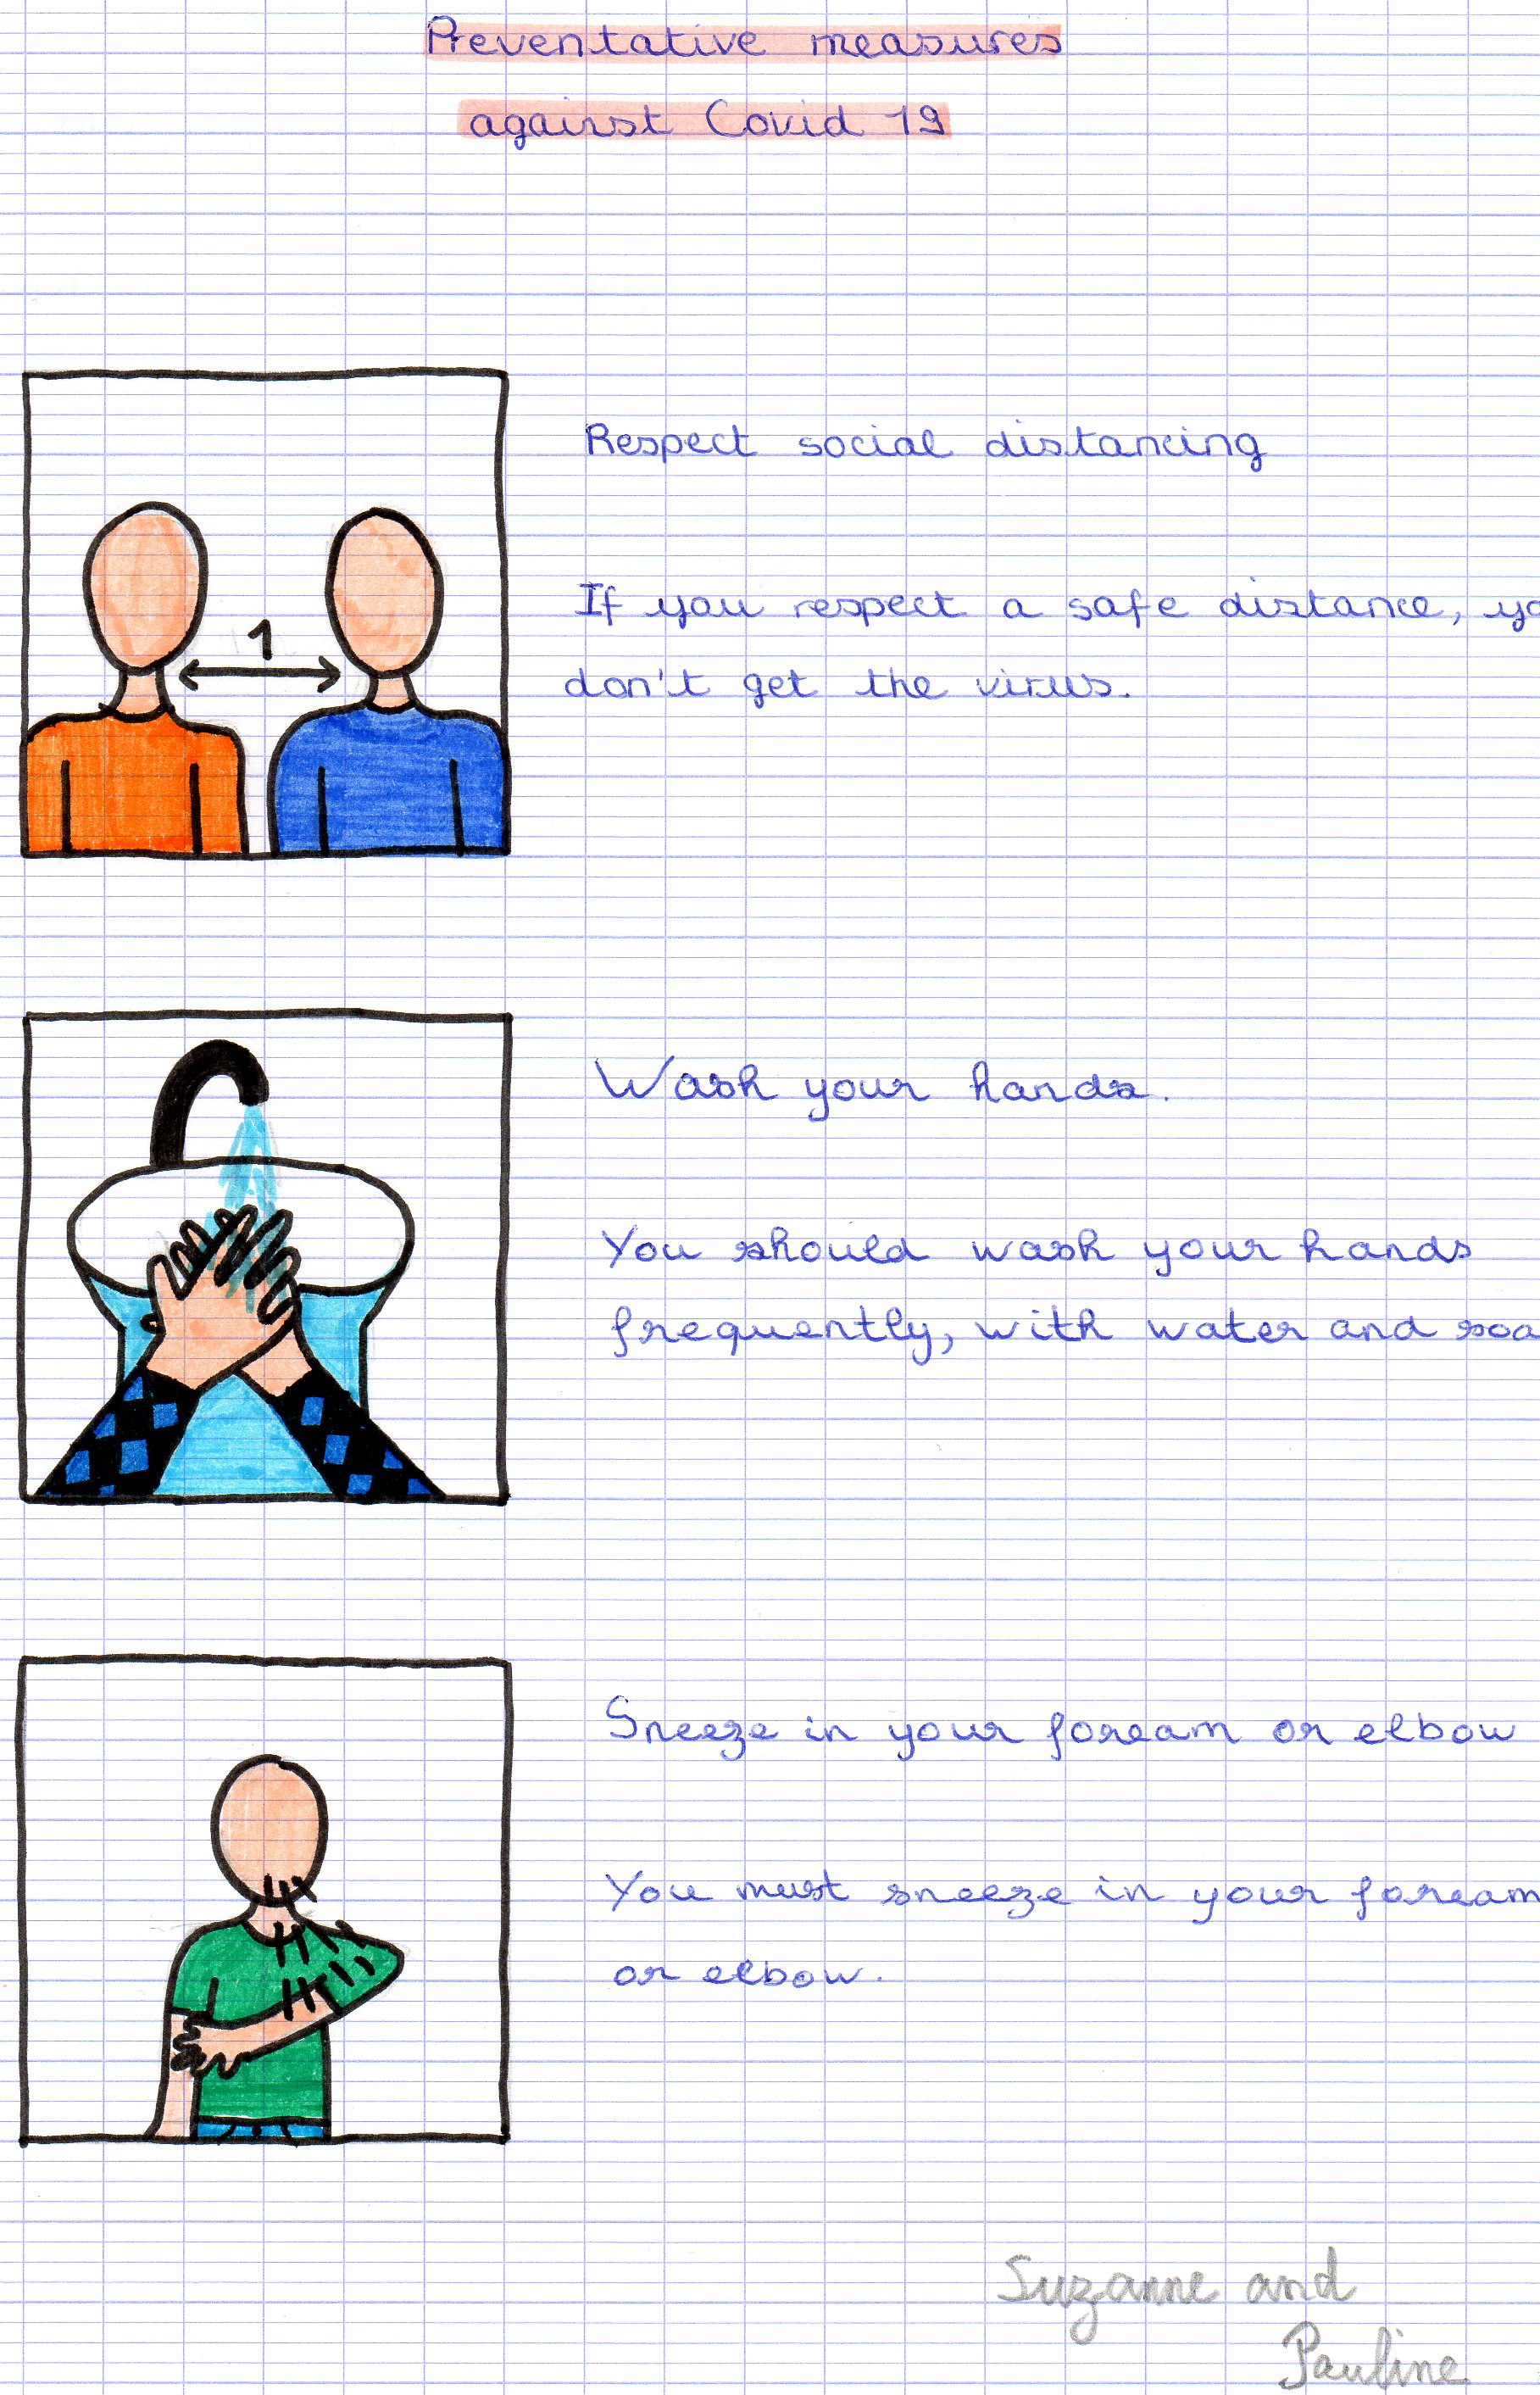 Preventative measures
against Covid 19
Respect social distancing
If you respect a safe distance, yo
don't get the virus.
1
Wash your hands.
You should wash your hands
frequently, with water and soa
Sneeze in your foream or elbow
You must sneeze in your foream
or elbow.
Suzanne and
Pauline